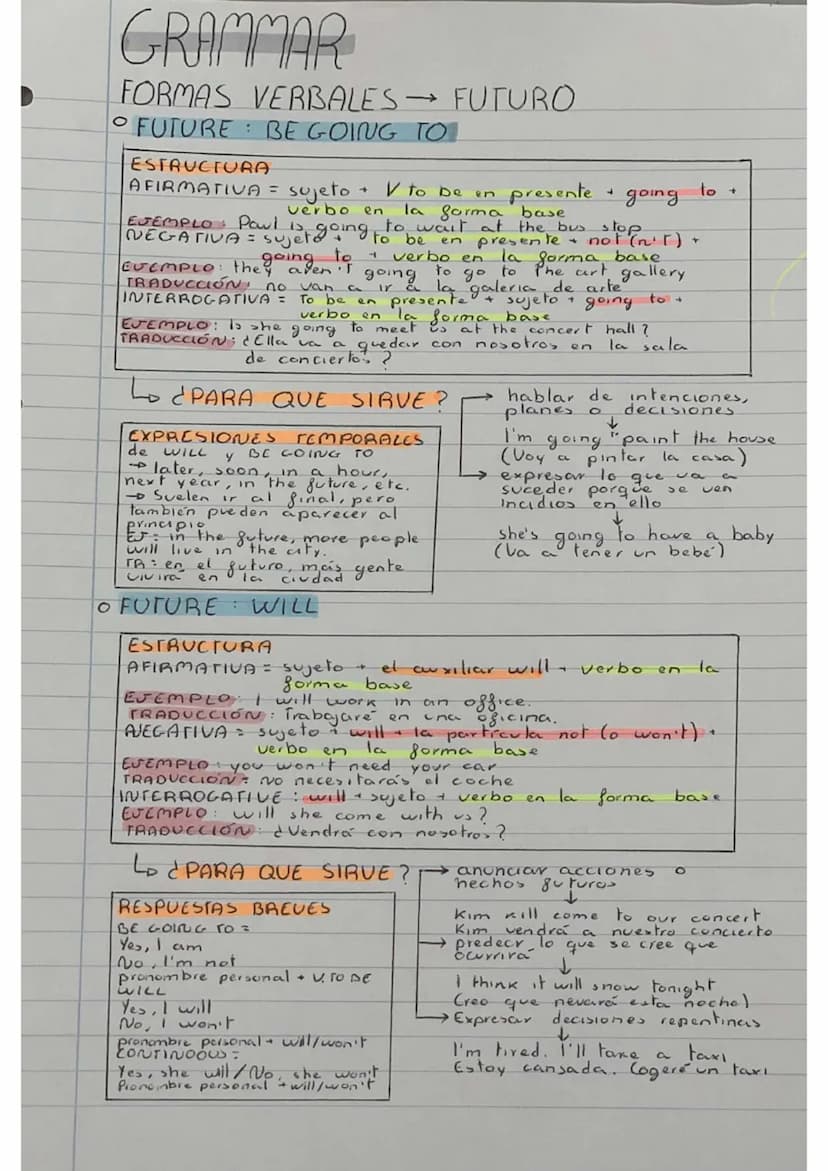 GRAMMAR
FORMAS VERBALES → FUTURO
FUTURE: BE GOING TO
ESTRUCTURA
AFIRMATIVA = sujeto + V to be en presente + going to +
verbo en la forma base
EJEMPLO: Paul is going to wait at the bus stop
NEGATIVA = sujeto + to be en presente + not (n't) +
going to + verbo en la forma base
EJEMPLO: they aren't going to go to the art gallery
TRADUCCIÓN: no van a ir a la galeria de arte
INTERROGATIVA = To be en presente + sujeto + going to +
verbo en la forma base
EJEMPLO: Is she going to meet us at the concert hall?
TRADUCCIÓN: ¿Ella va a quedar con nosotros en la sala
de conciertos?
¿PARA QUE SIRVE?
→ hablar de intenciones,
planes o decisiones
I'm going "paint the house
(Voy a pintar la casa)
→ expresar lo que va a
suceder porque se ven
incidios en ello
she's going to have a baby
(Va a tener un bebé)
EXPRESIONES TEMPORALES
de WILL y BE GOING TO
→ later, soon, in a hour,
next year, in the future, etc.
→ Suelen ir al final, pero
también pueden aparecer al
principio
EJ: in the future, more people
will live in the city.
TR: en el futuro, más gente
vivirá en la ciudad
FUTURE: WILL
ESTRUCTURA
AFIRMATIVA = sujeto + el auxiliar will + verbo en la
forma base
EJEMPLO: I will work in an office.
TRADUCCIÓN: Trabajaré en una oficina.
NEGATIVA = sujeto + will + la partícula not (o won't) +
verbo en la forma base
EJEMPLO: you won't need your car
TRADUCCIÓN: No necesitarás el coche
INTERROGATIVE: will + sujeto + verbo en la forma base
EJEMPLO: will she come with us?
TRADUCCIÓN: ¿Vendrá con nosotros?
¿PARA QUE SIRVE?
→ anunciar acciones o
hechos futuros
Kim kill come to our concert
Kim vendrá a nuestro concierto
→ predecir lo que se cree que
ocurrirá
I think it will snow tonight
(creo que nevará esta noche)
→ Expresar decisiones repentinas
I'm tired. I'll take a taxi
Estoy cansada. Cogeré un taxi
RESPUESTAS BREVES
BE GOING TO =
Yes, I am
No, I'm not
pronombre personal + V. TO BE
WILL
Yes, I will
No, I won't
pronombre personal + will/won't
CONTINOOUS =
Yes, she will/No, she won't
Pronombre personal + will/won't